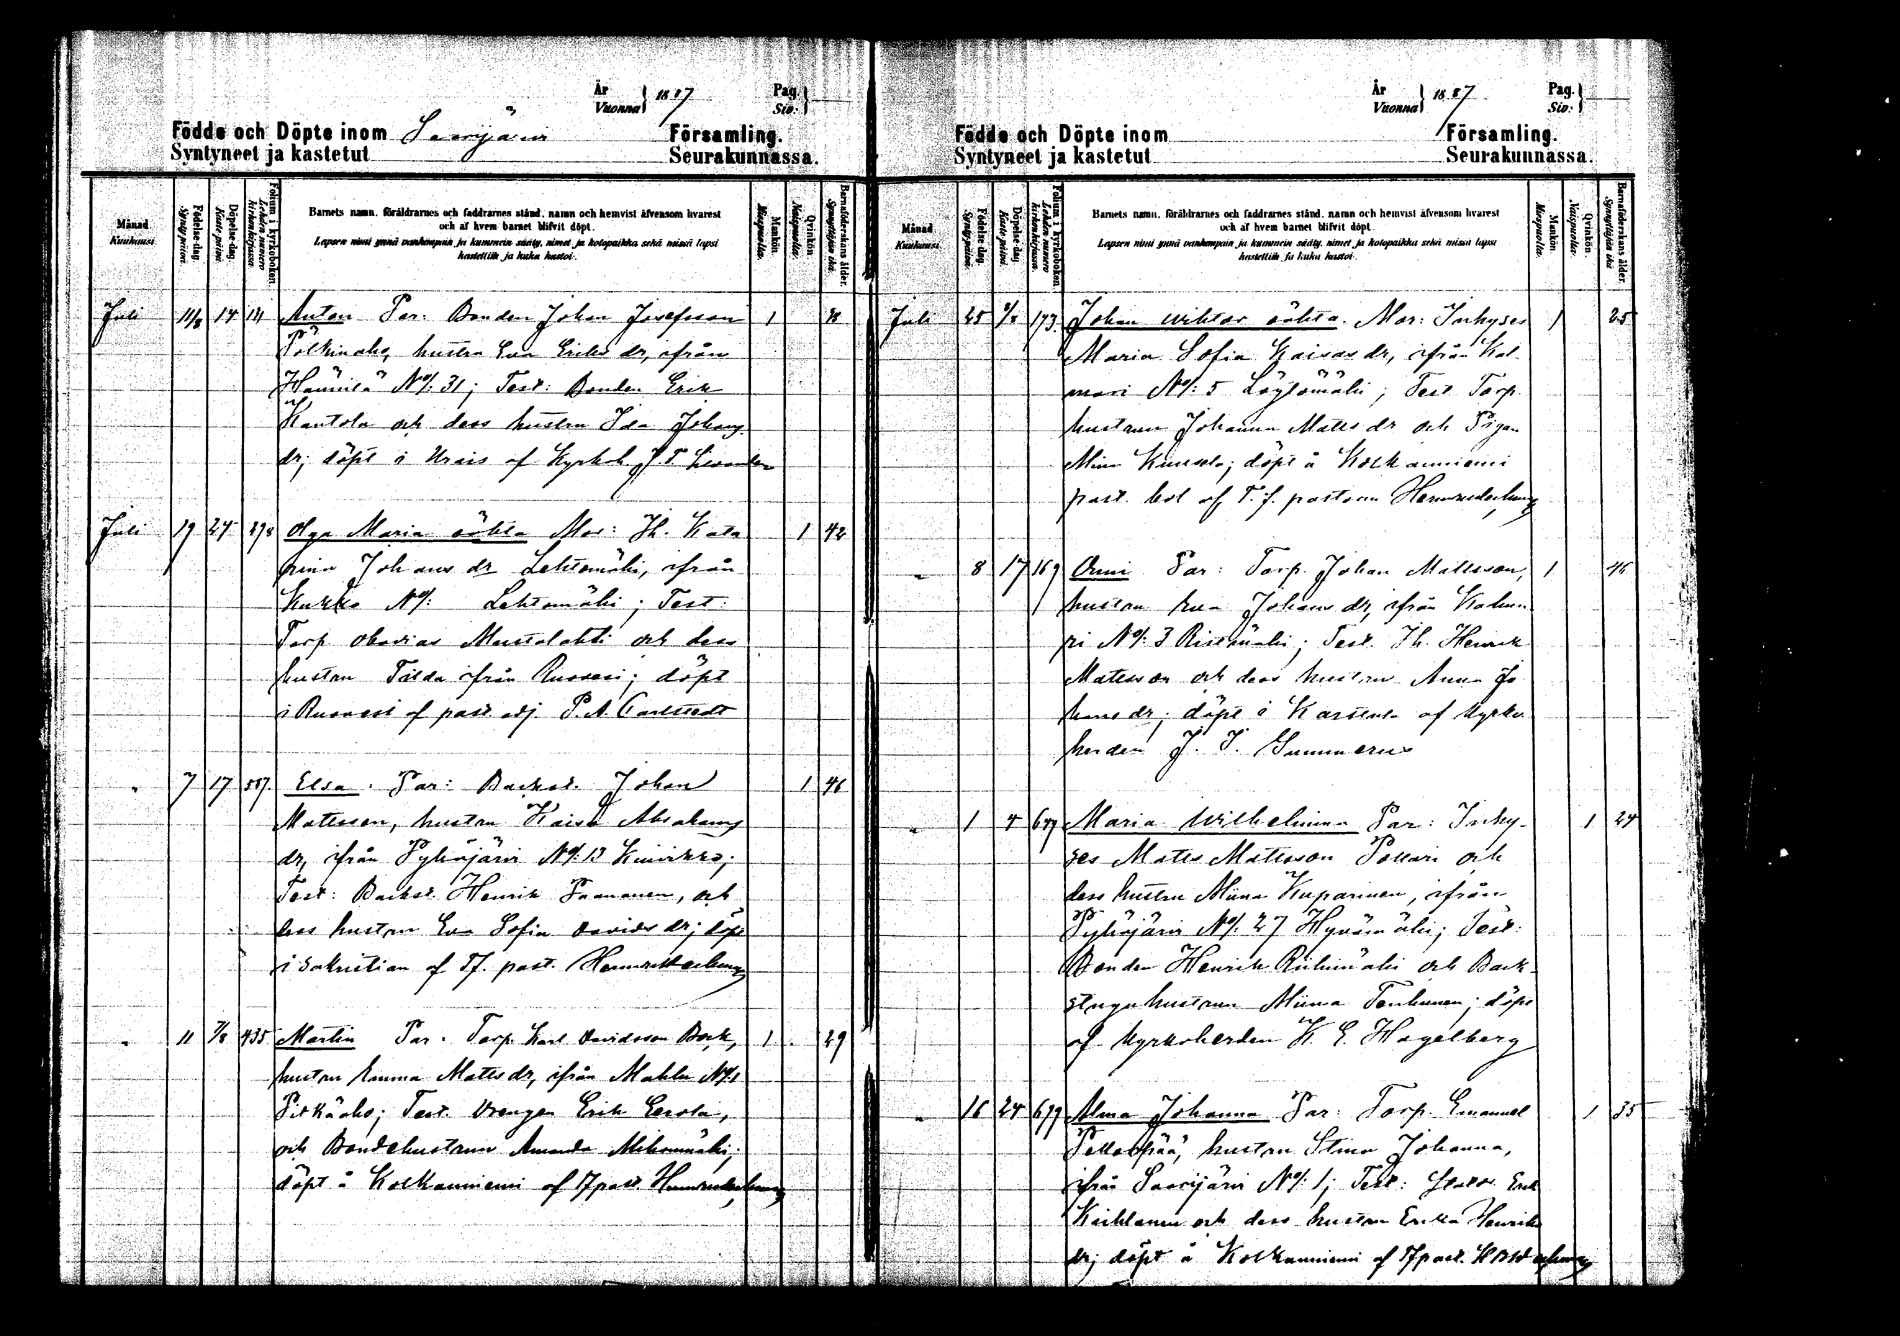 År
Vuonna } 1887
Pag.
Siv: }
Födde och Döpte inom Saarijärvi Församling.
Syntyneet ja kastetut Seurakunnassa.
Månad
Kuukausi
Födelse-dag.
Syntypäivä.
Döpelse-dag.
Kaste-päivä.
Folium i kyrkoboken.
Lehden numero
kirkonkirjassa.
Barnets namn, föräldrarnes och faddrarnes stånd, namn och hemvist äfvensom hvarest
och af hvem barnet blifvit döpt.
Lapsen nimi ynnä vanhempain ja kummein sääty, nimet ja kotopaikka sekä missä lapsi
kastettiin ja kuka kastoi.
Mankön.
Miespuolta.
Qvinkön.
Naispuolta.
Barnaföderskans ålder.
Synnyttäjän ikä
Juli 14 Anton Par: Bonden Johan Josefsson 1
hustru Eva Eriks dr, ifrån
Häännilä No/: 31; Test: Bonden Erik
Kantola och dess hustru Ida Johans
dr; döpt i Urais af Kyrkoh. J. F.
Juli 19 24 298 Olga Maria oäkta Mor: Jh. Kata
rina Johans dr Lehtomäki, ifrån
No/: Lehtomäki; Test:
Torp Obadias Mustalahti och dess
hustru Tilda ifrån Ruovesi; döpt 1 42
i Ruovesi af past. adj. P. A. Carlstedt
" 7 17 557. Elsa. Par: Backst. Johan 1 46
Matsson, hustru Kaisa Abrahams
dr, ifrån Pyhäjärvi No/: 13
Test: Backst. Henrik Paananen, och
dess hustru Eva Sofia Davids dr; döpt
i Sakristian af Tf. past.
" 11 7/8 435 Martin Par. Torp. Karl Davidsson Bock, 1 29
hustru Emma Mats dr, ifrån Mahlu No/:
Pitkäaho; Test. Drengen Erik Eerola,
och Bondehustrun Amanda
döpt å Kolkanniemi af Tf past.
År
Vuonna } 1887
Pag.
Siv: }
Födde och Döpte inom Församling.
Syntyneet ja kastetut Seurakunnassa.
Månad
Kuukausi
Födelse-dag.
Syntypäivä.
Döpelse-dag.
Kaste-päivä.
Folium i kyrkoboken.
Lehden numero
kirkonkirjassa.
Barnets namn, föräldrarnes och faddrarnes stånd, namn och hemvist äfvensom hvarest
och af hvem barnet blifvit döpt.
Lapsen nimi ynnä vanhempain ja kummein sääty, nimet ja kotopaikka sekä missä lapsi
kastettiin ja kuka kastoi.
Mankön.
Miespuolta.
Qvinkön.
Naispuolta.
Barnaföderskans ålder.
Synnyttäjän ikä
Juli 25 173 Johan Wiktor oäkta. Mor: Inhyses 1 25
Maria Sofia Kaisas dr, ifrån Kal-
mari No/: 5 Löytömäki; Test Torp.
hustrun Johanna Mats dr och Pigan
Mina; döpt å Kolkanniemi
past. bol af T. f. pastorn
" 8 17 169 Onni Par: Torp. Johan Matsson, 1 46
hustru Johans dr, ifrån
No/: 3 Ristimäki; Test. Jh. Henrik
Matsson och dess hustru Anna Jo
hans dr; döpt i Karstula af Kyrko
herden J. I. Gummerus
" 1 4 649 Maria Wilhelmina Par: Inhy- 1 24
ses Mats Matsson och
dess hustru Miina Kuparinen, ifrån
Pyhäjärvi No/. 27 Hyvämäki; Test:
Bonden Henrik Riihimäki och Back-
stuguhustrun Miina Tenhunen; döpt
af Kyrkoherden K. E. Hagelberg
" 16 24 699 Alma Johanna Par: Torp. Emanuel 1 35
Pellonpää, hustru Stina Johanna,
ifrån Saarijärvi No/: 1; Test: Erik
och dess hustru Erika Henriks
dr; döpt å Kolkanniemi af Tf past.